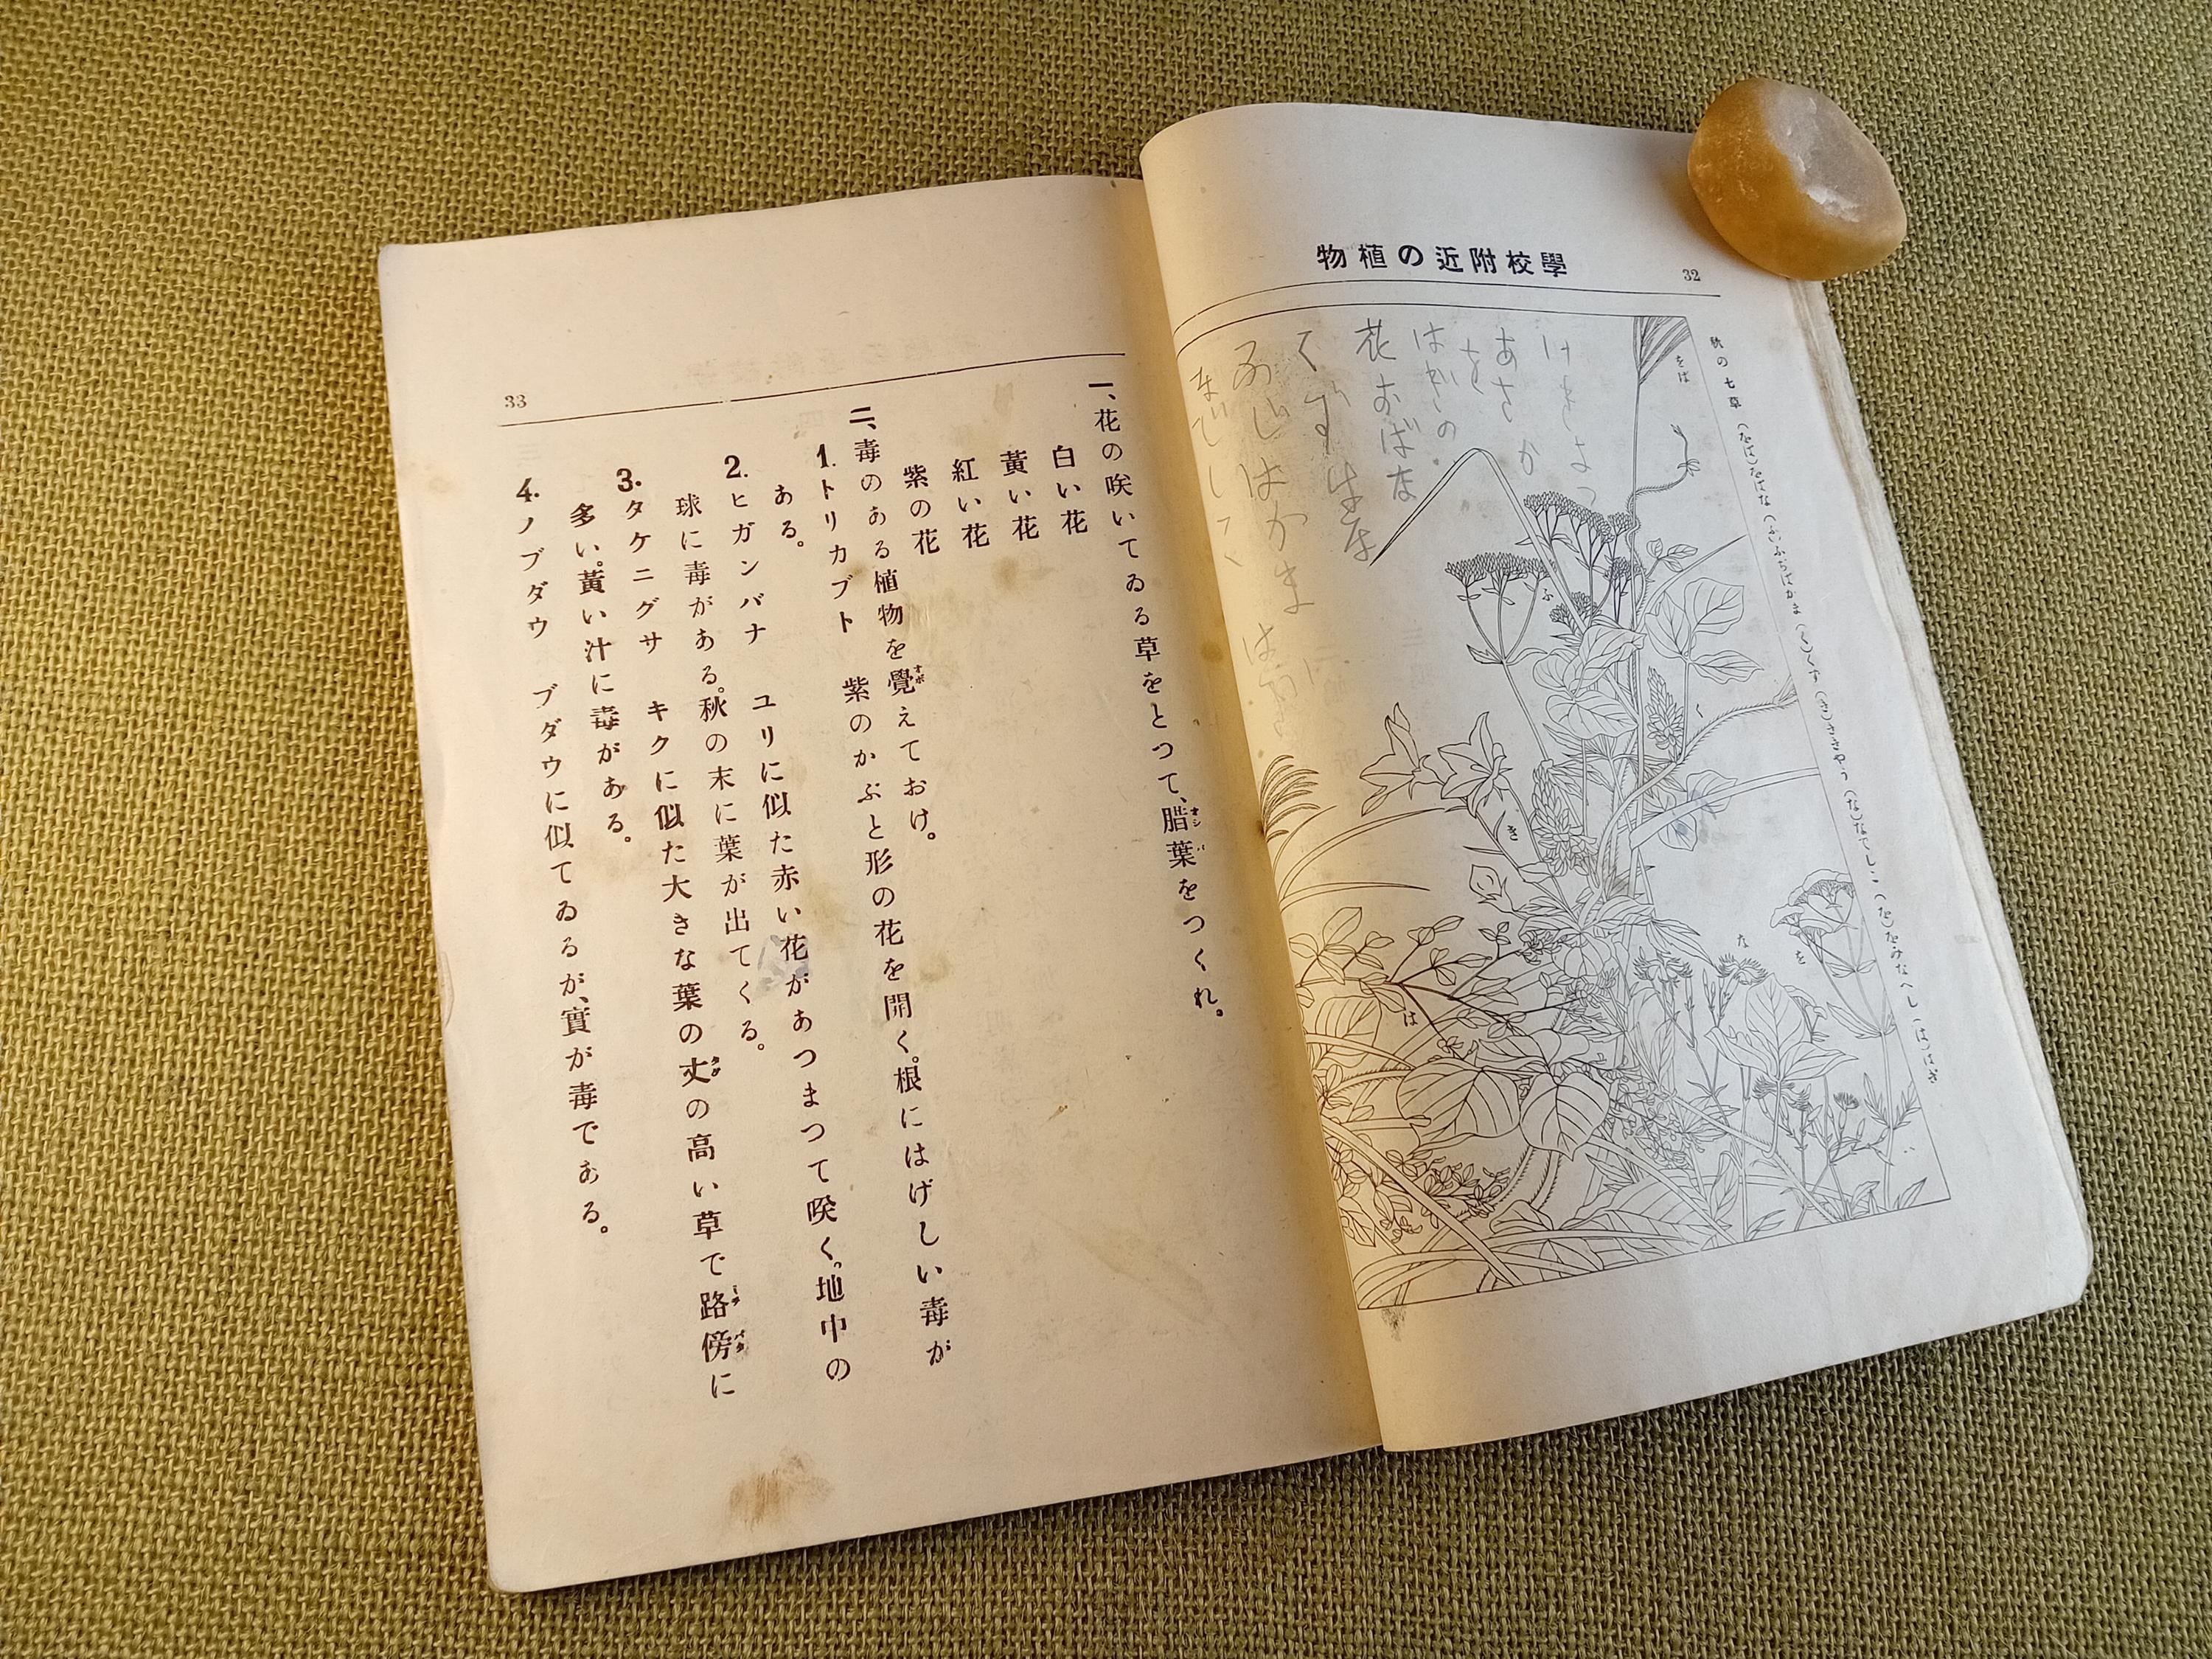 學校附近の植物
32
秋の七草 (をば)をばな (ふ)ふぢばかま (く)くず (き)ききやう (な)なでしこ (を)をみなへし (は)はぎ
をば
ふ
く
き
な
を
は
あさ
花おばな
33
一、花の咲いてゐる草をとつて、腊葉をつくれ。
オシ バ
白い花
黃い花
紅い花
紫の花
二、毒のある植物を覺えておけ。
オボ
1. トリカブト 紫のかぶと形の花を開く。根にはげしい毒が
ある。
2. ヒガンバナ ユリに似た赤い花があつまつて咲く。地中の
球に毒がある。秋の末に葉が出てくる。
3. タケニグサ キクに似た大きな葉の丈の高い草で路傍に
タケ
ミチ バタ
多い。黃い汁に毒がある。
4. ノブダウ ブダウに似てゐるが、實が毒である。